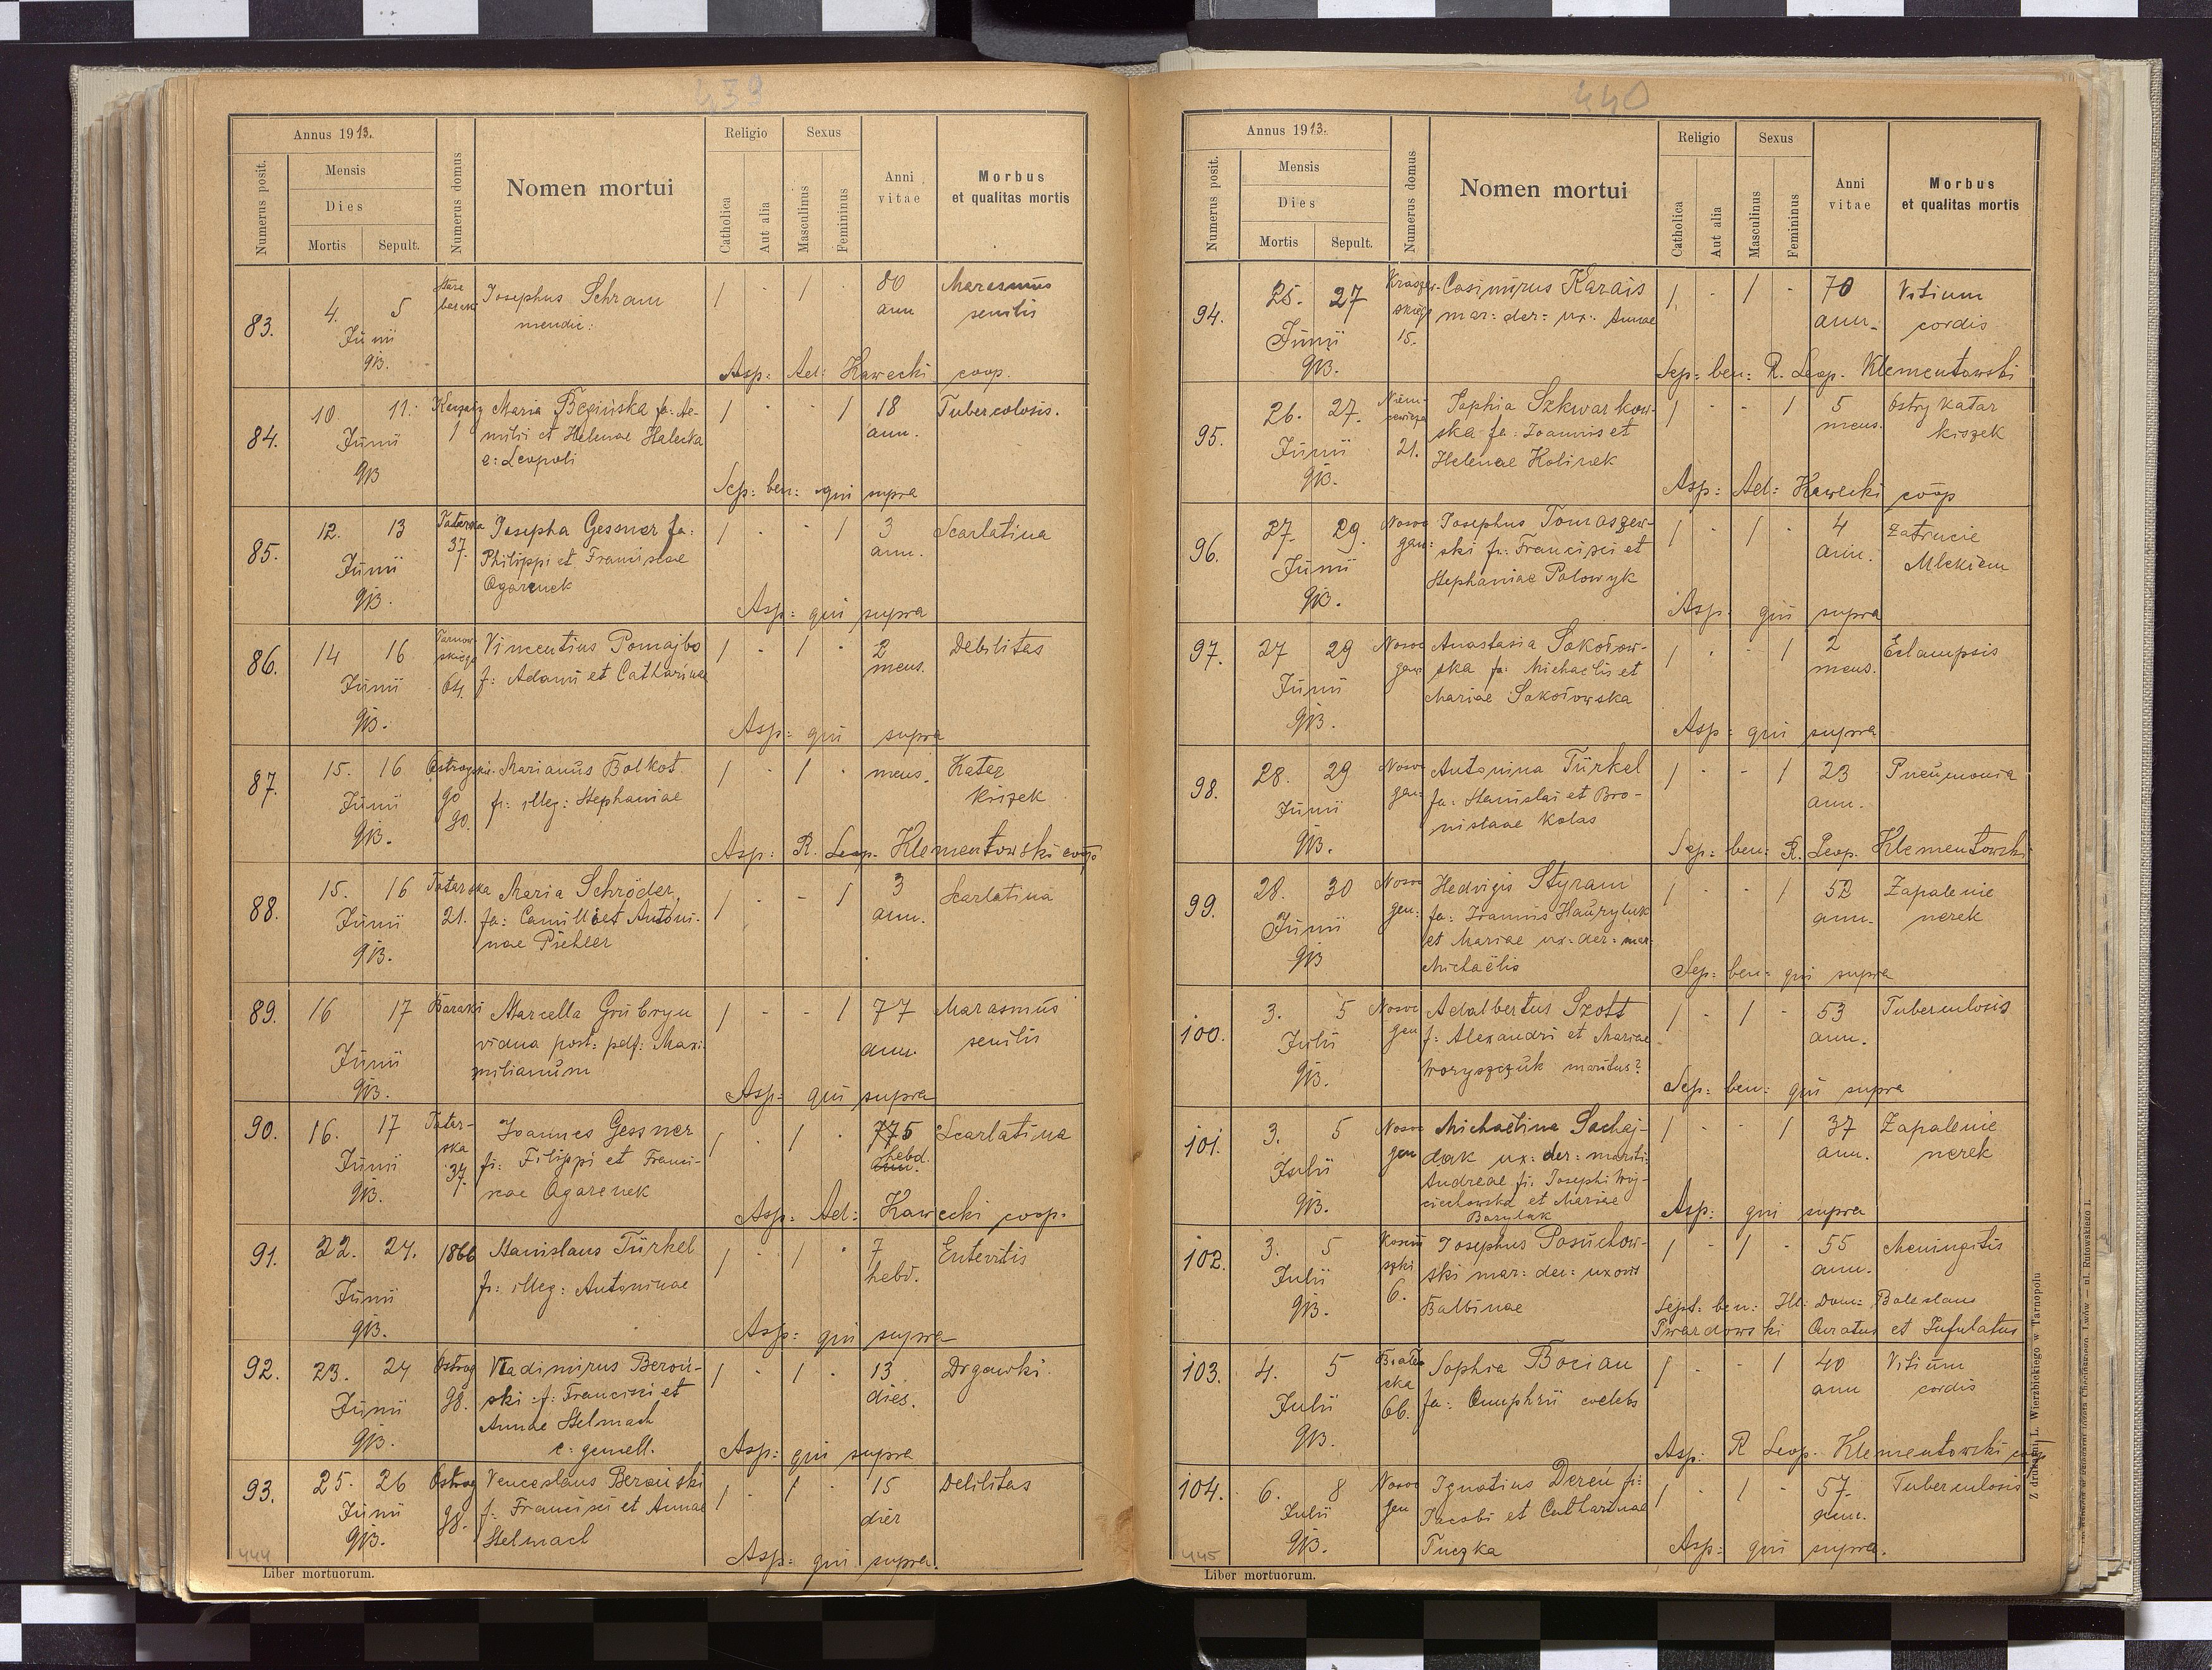 439
Annus 1913.
Numerus posit.
Mensis
Dies
Mortis Sepult.
Numerus domus
Nomen mortui
Religio
Catholica
Aut alia
Sexus
Masculinus
Femininus
Anni vitae
Morbus
et qualitas mortis
83. 4. 5 Josephus Schram 1 - 1 - 80 Marasmus
Junii mendic: ann senilis
913.
Asp: Ad: Kawecki coop.
84. 10. 11. Maria Beginska fa: Ae- 1 - - 1 18 Tuberculosis.
Junii 1 milii et Helenae Halecka ann.
913 e: Leopoli
Sep: ben: qui supra
85. 12. 13 Tatarska Josepha Gessner fa: 1 - - 1 3 Scarlatina
Junii 37. Philippi et Franciscae ann.
913. Ogarenek
Asp: qui supra
86. 14 16 Tarnow- Vincentius Pomajbo 1 - 1 - 2 Debilitas
Junii skiego f: Adami et Catharinae mens.
913. 64.
Asp: qui supra
87. 15. 16 Ostrogski- Marianus Bolkot 1 - 1 - mens. Katar
Junii go fi: illeg: Stephaniae kiszek
913. 90.
Asp: R. Leop. Klementowski coop
88. 15. 16 Tatarska Maria Schröder 1 - - 1 3 Scarlatina
Junii 21. fa: Camilli et Antoni- ann.
913. nae Piehler
89. 16 17 Baraki Marcella Grubryn 1 - - 1 77 Marasmus
Junii vidua post: pdf: Maxi- ann. senilis
913. milianum
Asp: qui supra
90. 16. 17 Tatar- Joannes Gessner 1 - 1 - 775 Scarlatina
Junii ska fi: Filippi et Franci- hebd.
913. 37. scae Ogarenek ann.
Asp: Ad: Kawecki coop.
91. 22. 24. 1866 Stanislaus Türkel 1 - 1 - 7 Enteritis
Junii fi: illeg: Antoninae hebd.
913.
Asp: qui supra
92. 23. 24 Ostrog Vladimirus Beroń- 1 - 1 - 13 Drgawki.
Junii 98. ski f: Francisci et dies.
913. Annae Stelmach
e: gemell.
Asp: qui supra
93. 25. 26 Ostrog Venceslaus Beroński 1 - 1 - 15 Debilitas
Junii 98. f: Francisci et Annae dier
913. Stelmach
Asp: qui supra.
444
Liber mortuorum.
440
Annus 1913.
Numerus posit.
Mensis
Dies
Mortis Sepult.
Numerus domus
Nomen mortui
Religio
Catholica
Aut alia
Sexus
Masculinus
Femininus
Anni vitae
Morbus
et qualitas mortis
94. 25. 27 Kraszew- Casimirus Karais 1. - 1 - 70 Vitium
Junii skiego mar: der: ux: Annae ann. cordis
913. 15.
Sep: ben: R. Leop. Klementowski
95. 26. 27. Niem- Sophia Szkwarkow- 1 - - 1 5 Ostry Katar
Junii cewicza ska fa: Joannis et mens. kiszek
913. 21. Helenae Kolinek
Asp: Ad: Kawecki coop
96. 27. 29. Nosoc Josephus Tomaszew- 1 - 1 - 4 Zatrucie
Junii gen: ski fi: Francisci et ann. Mlekiem
913. Stephaniae Polowyk
Asp: qui supra
97. 27 29 Nosoc Anastasia Sokołow- 1 - - 1 2 Eclampsis
Junii gen ska fa: Michaelis et mens.
913. Mariae Sokołowska
Asp: qui supra
98. 28. 29 Nosoc Antonina Türkel 1 - - 1 23 Pneumonia
Junii gen: fa: Stanislai et Bro- ann.
913. nislaae Kolas
Sep: ben: R. Leop. Klementowski
99. 28. 30 Nosoc Hedvigis Styrani 1 - - 1 52 Zapalenie
Junii gen: fa: Joannis Hauryluk ann. nerek
913 et Mariae ux: der: mar:
Michaëlis
Sep: ben: qui supra
100. 3. 5 Nosoc Adalbertus Szott 1 - 1 - 53 Tuberculosis
Julii gen f: Alexandri et Mariae ann.
913. Woryszczuk maritus?
Sep: ben: qui supra
101. 3. 5 Nosoc Michaëlina Sachaj- 1 - - 1 37 Zapalenie
Julii gen dak ux: der: mariti: ann. nerek
913. Andreae fi: Josephi Woj-
ciechowska et Mariae
Baryluk
Asp: qui supra
102. 3. 5 Kosciu Josephus Posuchow- 1 - 1 - 55 Meningitis
Julii szki ski mar: der: uxoris ann.
913. 6. Balbinae
Sept: ben: Ill: Dom: Boleslaus
Twardowski Curatus et Infulatus
103. 4. 5 Sophia Bocian 1 - - 1 40 Vitium
Julii 66. fa: Onuphrii coelebs ann cordis
913.
Asp: R Leop. Klementowski coop
104. 6. 8 Nosoc Ignatius Dereń fi: 1 - 1 - 57. Tuberculosis
Julii gen Jacobi et Catharinae ann.
913. Tuczka
Asp: qui supra.
445
Liber mortuorum.
Z drukarni L. Wierzbickiego w Tarnopolu